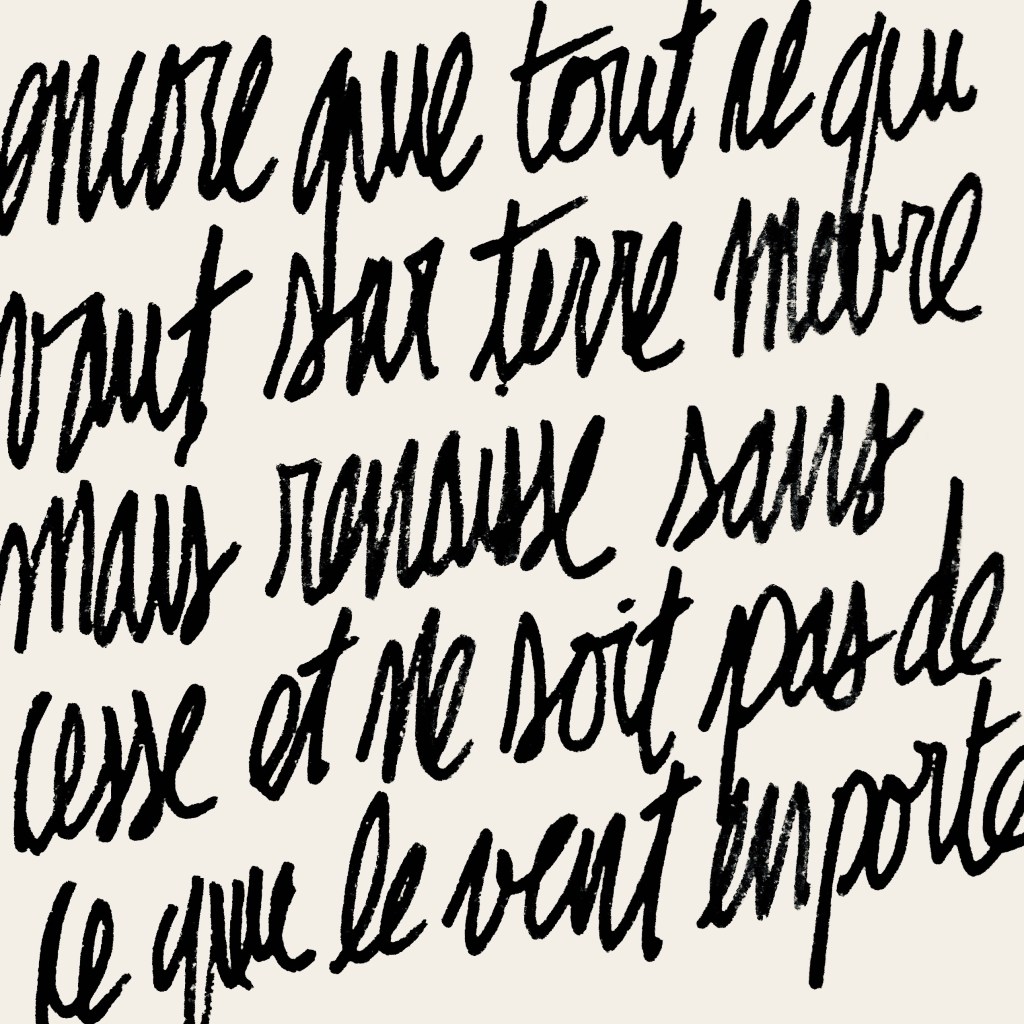 encore que tout ce qui
vaut sur terre meure
mais renaisse sans
cesse et ne soit pas de
ce que le vent emporte